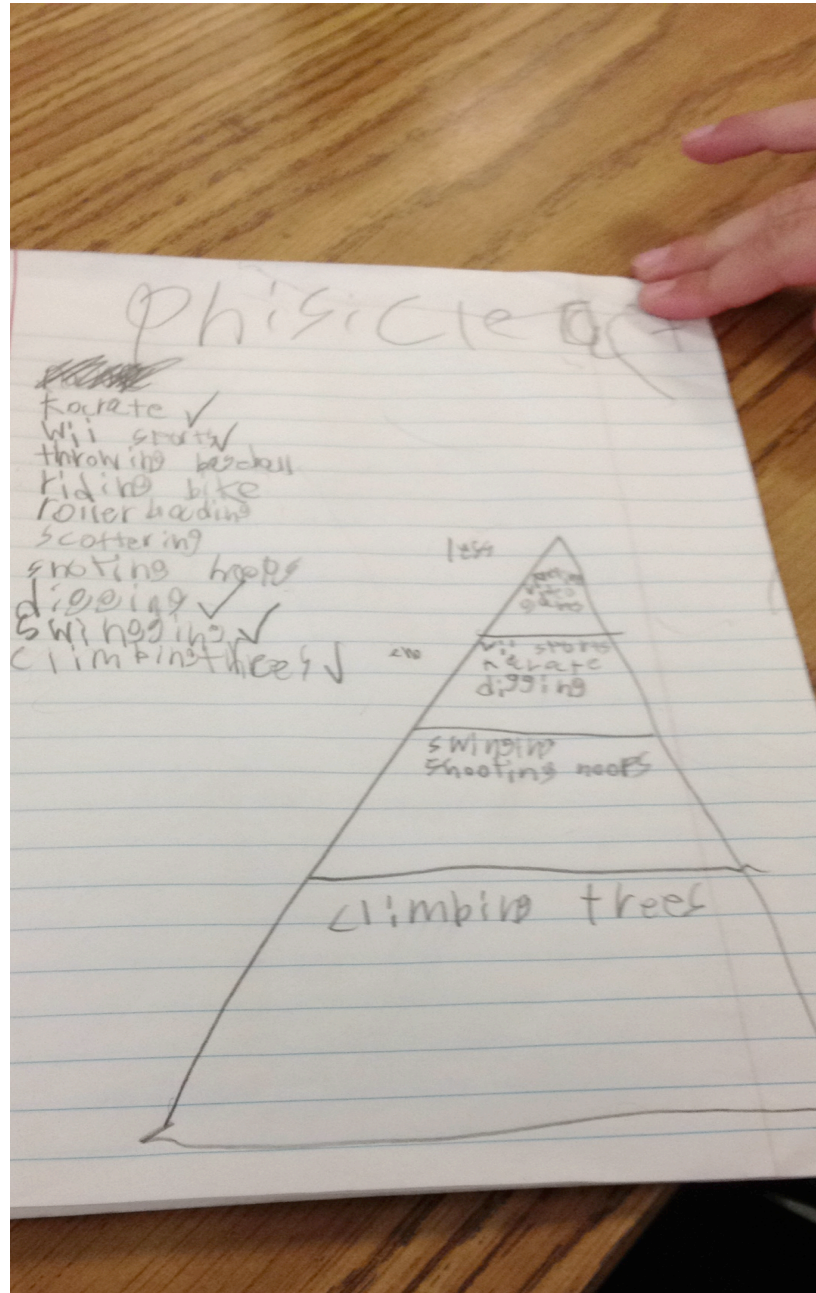 Phisicle act
karate ✓
Wii sports ✓
throwing baseball
riding bike
rollerblading
scottering
shoting hoops
digging ✓
swingging ✓
climbingthrees ✓
less
video
wii sports
karate
digging
swinging
shooting hoops
climbing trees